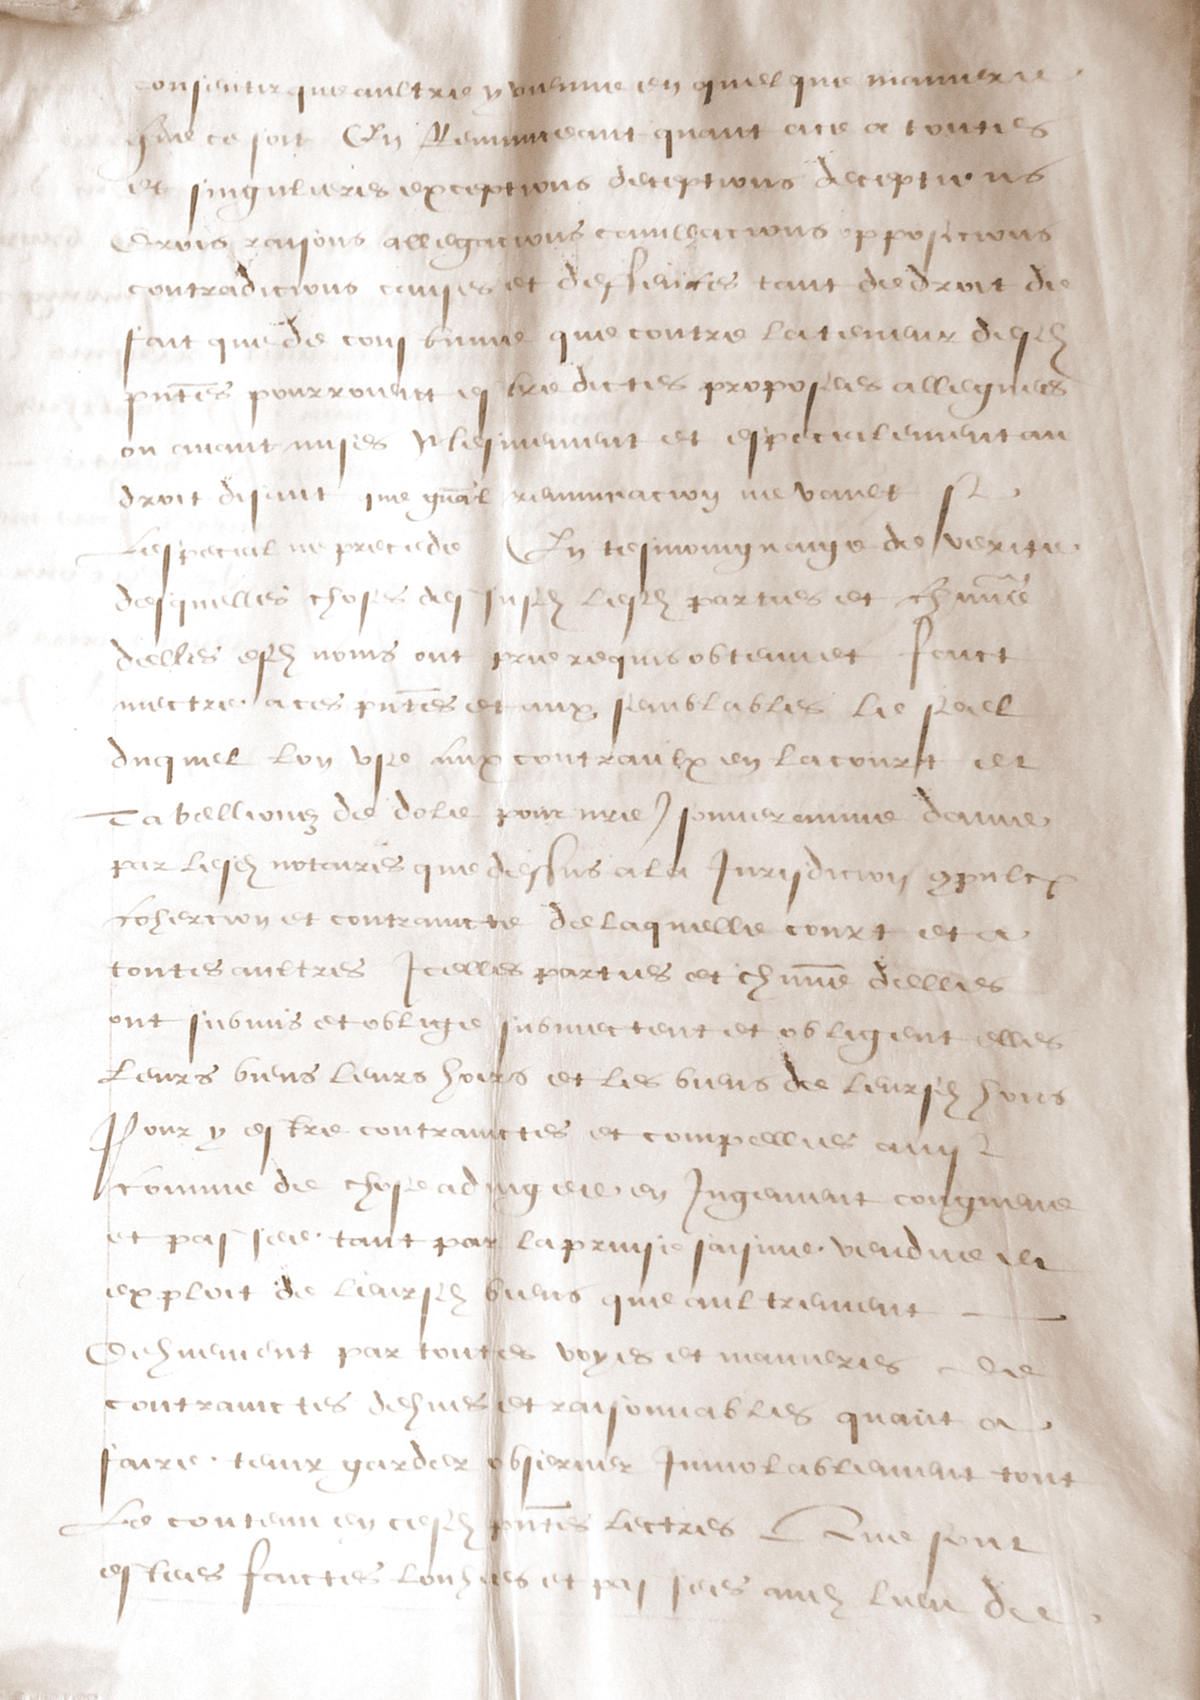 consentir que aultre y vienne en quelque maniere
que ce soit En Renunceant quant ace a toutes
et singulieres exceptions deceptions deceptions
Drois raisons allegacions cavillacions opposicions
contradicions causes et deffences tant de droit de
fait que de coustume que contre la teneur desd
pntes pourroient estre dictes proposees alleguees
ou avant mises Mesmement et especialement au
droit disant que gnal renunciacion ne vault se
Lespecial ne precede En tesmoingnaige de verite
desquelles choses dessusd lesd parties et chune
delles esd noms ont prie requis obtenu et faict
mectre a ces pntes et aux semblables le seel
duquel lon use aux contraulx en la court et
Tabellionez de dole pour nre souveraine dame
par lesd notaires que dessus a la Jurisdicion
cohercion et contraincte de laquelle court et a
toutes aultres Icelles parties et chune delles
ont submis et oblige submectent et obligent elles
Leurs biens leurs hoirs et les biens de leursd hoirs
Pour y estre contrainctes et compellies ainsi
comme de chose adiugee en Jugement congneue
et passee tant par la prinse saisine vendue et
exploit de leursd biens que aultrement
Dehuement par toutes voyes et manieres de
contrainctes dehues et raisonnables quant a
faire tenir garder observer Inviolablement tout
Le contenu en cesd pntes lectres Que sont
estees faictes louhees et passees aud lieu de